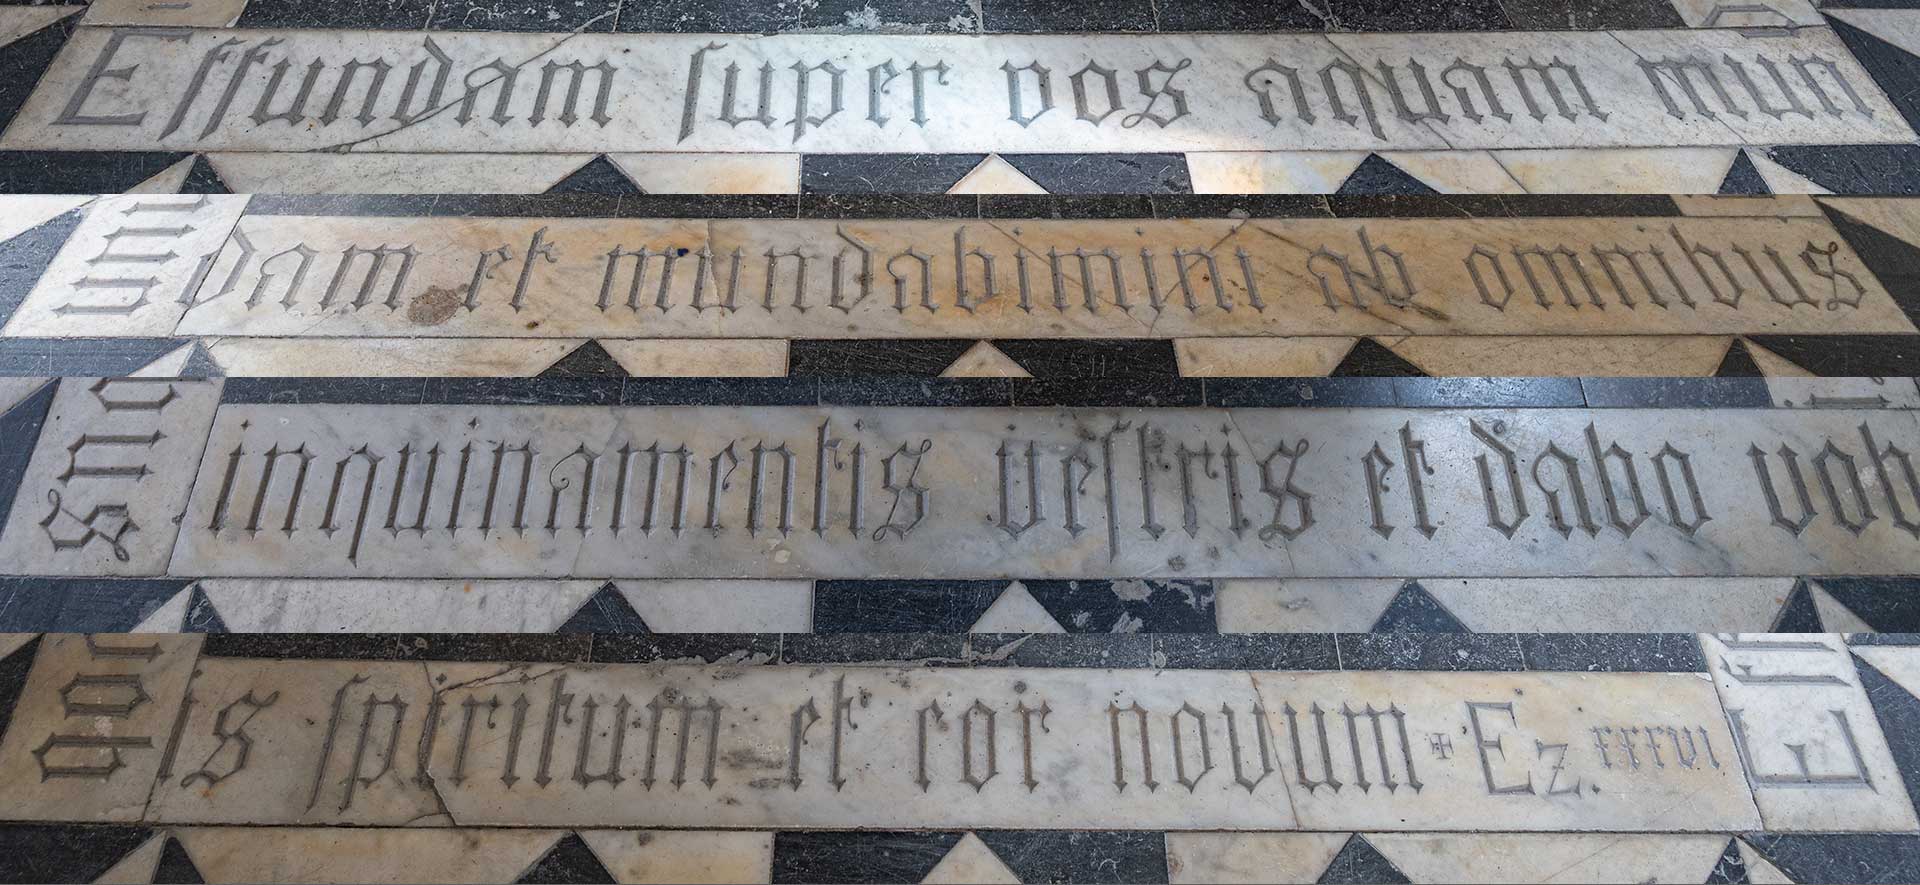 Effundam super vos aquam mun
dam et mundabimini ab omnibus
inquinamentis vestris et dabo vob
is spiritum et cor novum + Ez. xxxvi